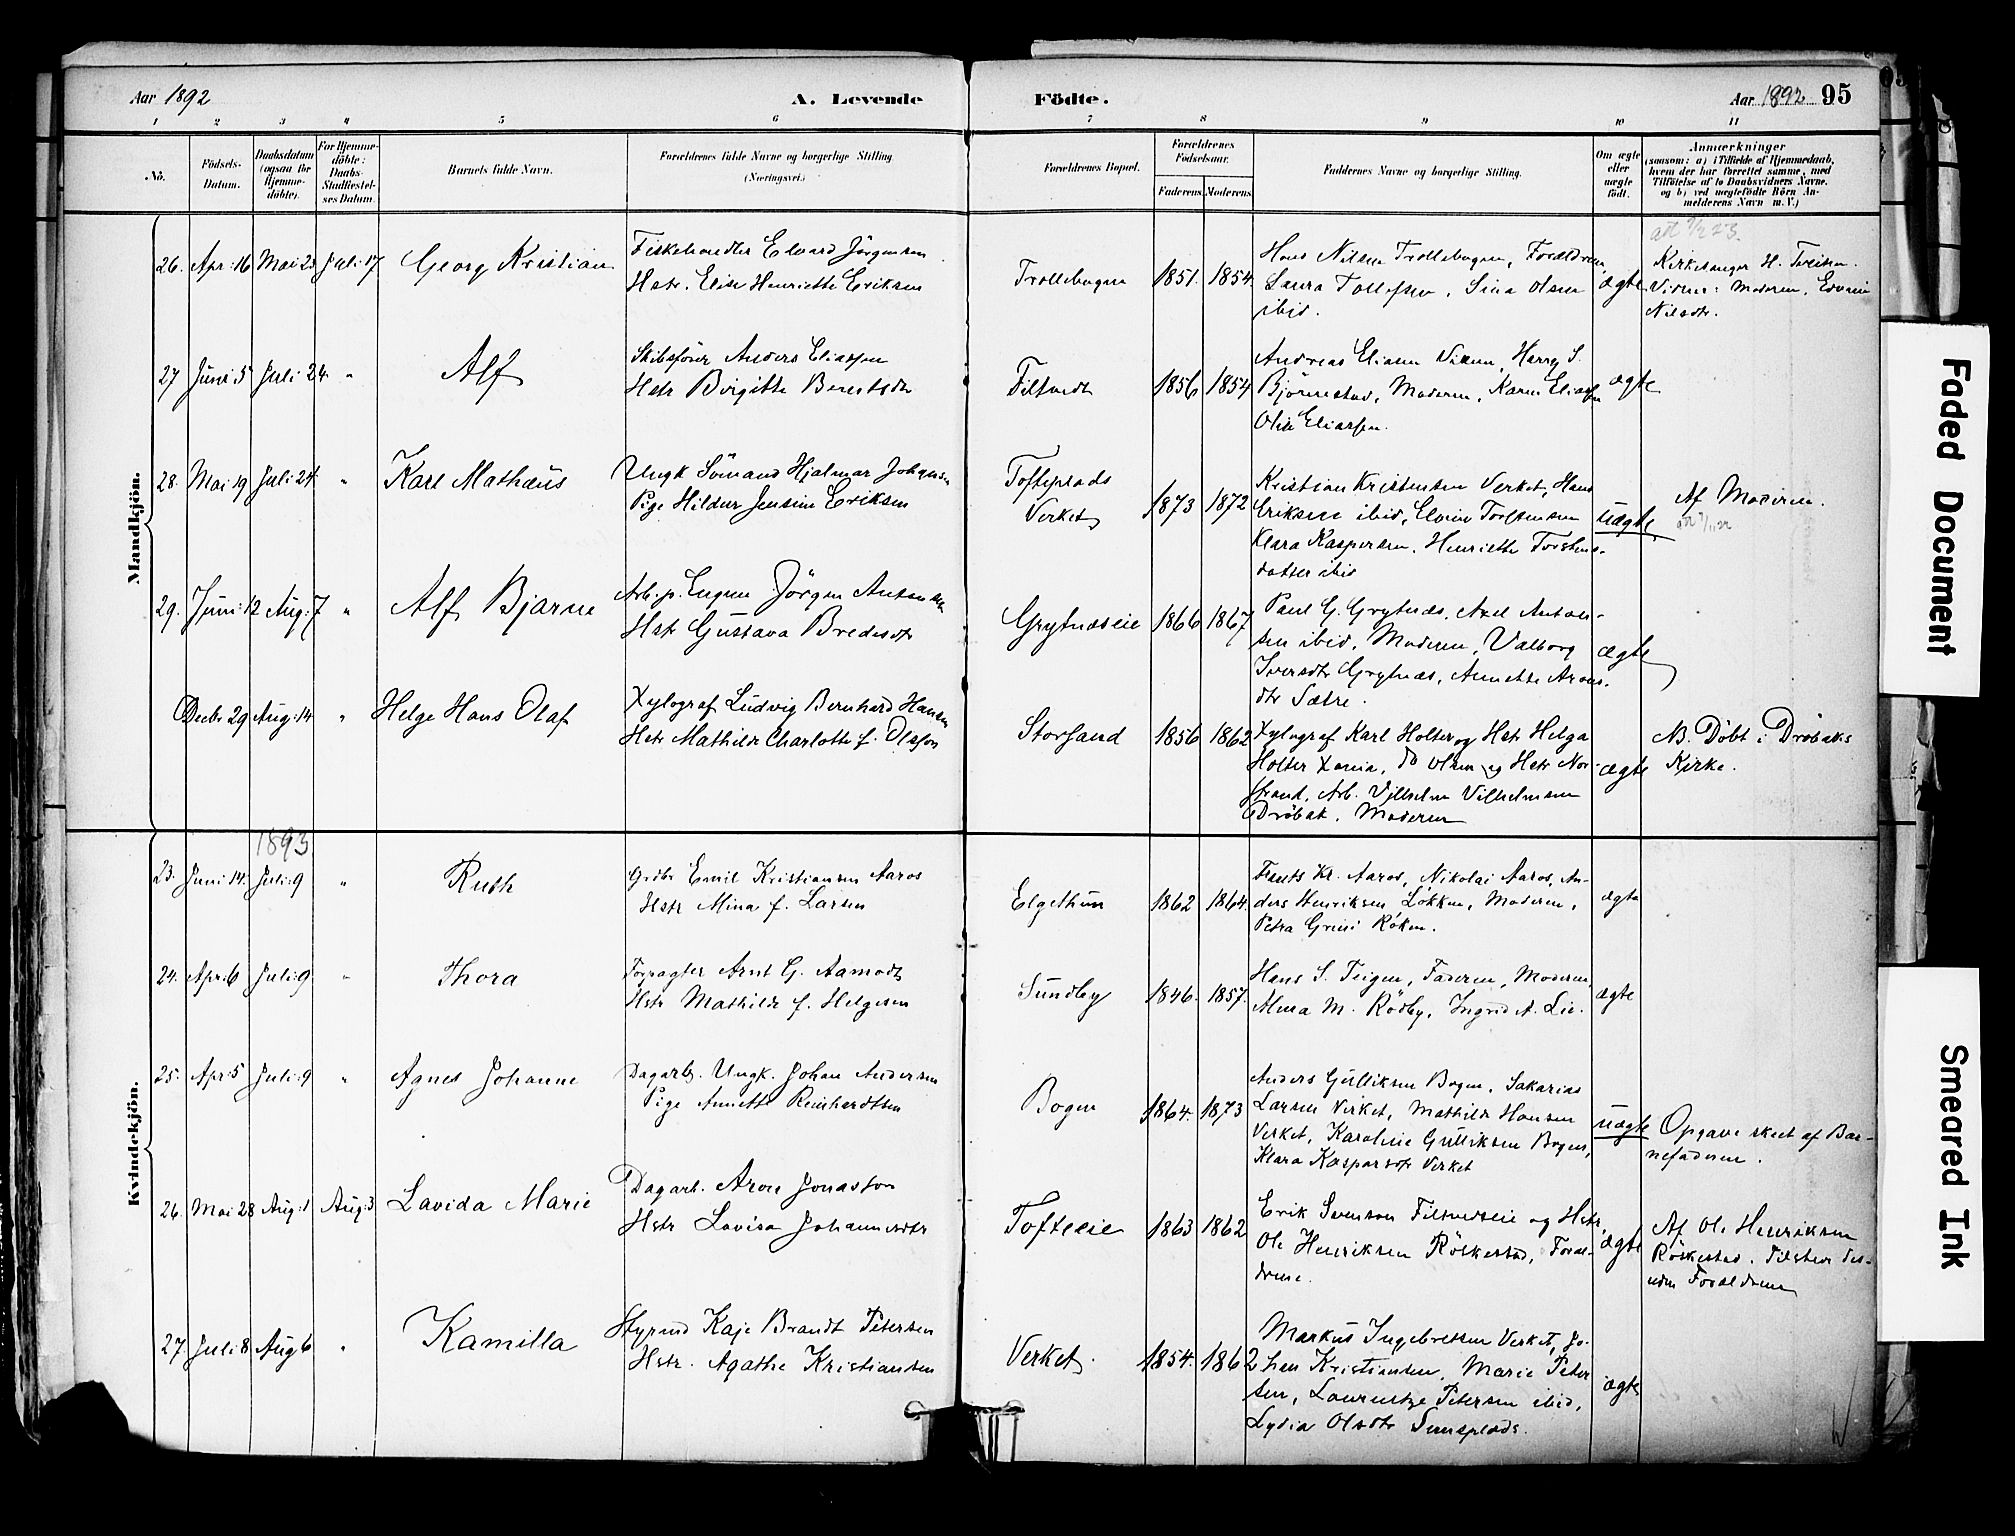 Aar 1892
A. Levende
Födte.
Aar 1892 95
1 2 3 4 5 6 7 8 9 10 11
No.
Födsels-Datum.
Daabsdatum (ogsaa for Hjemmedöbte).
For Hjemmedöbte: Daabs-Stadfæstelses Datum.
Barnets fulde Navn.
Forældrenes fulde Navne og borgerlige Stilling (Næringsvei.)
Forældrenes Bopæl.
Forældrenes Födselsaar.
Faderens Moderens
Faddernes Navne og borgerlige Stilling.
Om ægte eller uægte födt.
Anmærkninger
(saasom: a) i Tilfælde af Hjemmedaab,
hvem der har forrettet samme, med
Tilföielse af to Daabsvidners Navne,
og b) ved uægtefödte Börn An-
melderens Navn m. V.)
Mandkjön.
26. Apr: 16 Mai 23 Juli 17 Georg Kristian
Fiskehandler Edvard Jörgensen
Hstr. Elise Henriette Eriksen
Trollebugen 1851. 1854.
Hans Nilsen Trollebugen, Forældrene,
Laura Tollefsen, Sina Olsen
ibid.
ægte
Kirkesanger H. Tveiten.
Vidner: Moderen,
Nilsdtr.
27 Juni 5 Juli 24 " Alf
Skibsförer Anders Eliassen
Hstr Birgitte Berntsdtr
Filtvedt 1856 1854
Andreas Eliasen Viken, Harry S.
Björnestad, Moderen, Karen Eliassen
Olise Eliassen.
ægte
28. Mai 19 Juli 24 " Karl Mathæus
Ungk Sömand Hjalmar Johansen
Pige Hildur Jensine Eriksen
Tofteplads
Verket 1873 1872
Kristian Kristensen Verket, Hans
Eriksen ibid, Elvine Torstensen
Klara Kaspersen, Henriette Torstens-
datter ibid
uægte
Af Moderen.
29. Juni: 12 Aug: 7 " Alf Bjarne
Arb. p. Eugen Jörgen Antonsen
Hstr Gustava Bredesdtr
Grytnæseie 1866 1867
Paul G. Grytnæs, Axel Anton-
sen ibid, Moderen, Valborg
Iversdtr Grytnæs, Annette Arons-
dtr Sætre.
ægte
Decbr 29 Aug: 14 " Helge Hans Olaf
Xylograf Ludvig Bernhard Hansen
Hstr Mathilde Charlotte f. Olsson
Storsand 1856 1862
Xylograf Karl Holter og Hstr Helga
Holter Xania, Do Olsen og Hstr Nor-
strand, Arb. Vilhelm Vilhelmsen
Dröbak, Moderen
ægte
NB. Döbt i Dröbaks
Kirke.
Kvindekjön.
1893
23. Juni 14. Juli: 9 " Ruth
Grdbr Emil Kristiansen Aaros
Hstr Mina f. Larsen
Elgethun 1862 1864.
Frants Kr. Aaros, Nikolai Aaros, An-
ders Henriksen Løkken, Moderen,
Petra Grini Röken.
ægte
24. Apr: 6 Juli: 9 " Thora
Forpagter Arnt G. Aamodt
Hstr Mathilde f. Helgesen
Sundby 1846. 1857.
Hans S. Teigen, Faderen, Moderen,
Alma M. Rödby, Ingrid A. Lie.
ægte
25. Apr: 5 Juli: 9 " Agnes Johanne
Dagarb. Ungk. Johan Andersen
Pige Annette Reinhardtsen
Bogen 1864. 1873
Anders Gulliksen Bogen, Sakarias
Larsen Verket, Mathilde Hansen
Verket, Karoline Gulliksen Bogen,
Klara Kaspersdtr Verket
uægte
Opgave skeet af Bar-
nefaderen.
26. Mai 28 Aug: 1 Aug: 3 Lavida Marie
Dagarb. Aron Jonasson
Hstr Lovisa Johannesdtr
Tofteeie 1863 1862
Erik Svenson Filtvedseie og Hstr,
Ole Henriksen Röskestad, Foræl-
drene.
ægte
Af Ole Henriksen
Röskestad. Tilstede des-
uden Forældrene
27. Juli 8 Aug 6 " Kamilla
Styrmd Kaje Brandt Petersen
Hstr. Agathe Kristiansen
Verket. 1854. 1862
Markus Ingebretsen Verket, Jo-
han Kristiansen, Marie Peter
sen, Laurentze Petersen ibid,
Lydia Olsdtr
ægte
Faded Document
Smeared Ink